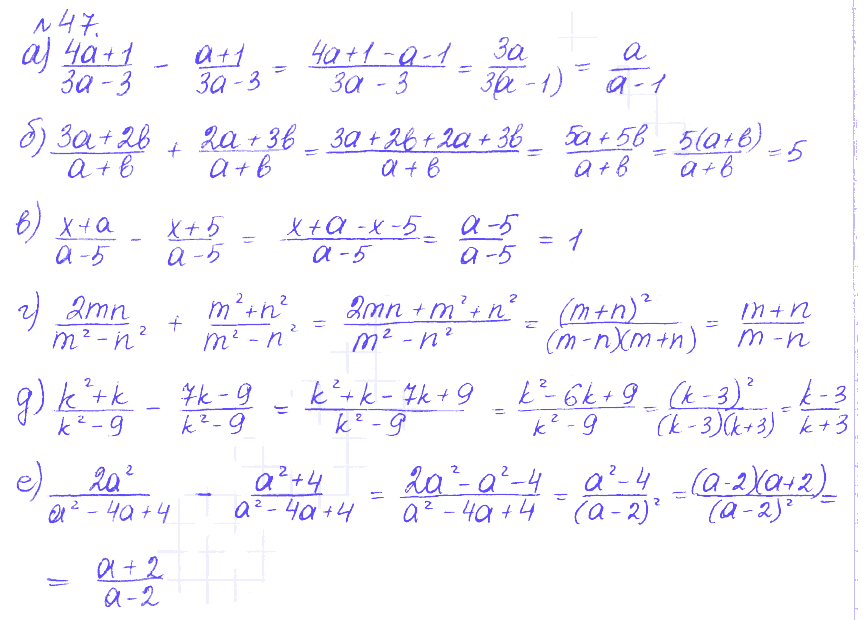 №47.
а) (4a+1)/(3a-3) - (a+1)/(3a-3) = (4a+1-a-1)/(3a-3) = 3a/(3(a-1)) = a/(a-1)
б) (3a+2b)/(a+b) + (2a+3b)/(a+b) = (3a+2b+2a+3b)/(a+b) = (5a+5b)/(a+b) = 5(a+b)/(a+b) = 5
в) (x+a)/(a-5) - (x+5)/(a-5) = (x+a-x-5)/(a-5) = (a-5)/(a-5) = 1
г) 2mn/(m²-n²) + (m²+n²)/(m²-n²) = (2mn+m²+n²)/(m²-n²) = (m+n)²/((m-n)(m+n)) = (m+n)/(m-n)
д) (k²+k)/(k²-9) - (7k-9)/(k²-9) = (k²+k-7k+9)/(k²-9) = (k²-6k+9)/(k²-9) = (k-3)²/((k-3)(k+3)) = (k-3)/(k+3)
е) 2a²/(a²-4a+4) - (a²+4)/(a²-4a+4) = (2a²-a²-4)/(a²-4a+4) = (a²-4)/(a-2)² = (a-2)(a+2)/(a-2)² =
= (a+2)/(a-2)